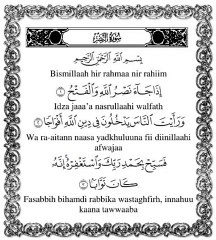 سورة النصر
بِسْمِ اللَّهِ الرَّحْمَٰنِ الرَّحِيمِ
Bismillaah hir rahmaa nir rahiim
إِذَا جَاءَ نَصْرُ اللَّهِ وَالْفَتْحُ ۝١
Idza jaaa'a nasrullaahi walfath
وَرَأَيْتَ النَّاسَ يَدْخُلُونَ فِي دِينِ اللَّهِ أَفْوَاجًا ۝٢
Wa ra-aitann naasa yadkhuluuna fii diinillaahi
afwaajaa
فَسَبِّحْ بِحَمْدِ رَبِّكَ وَاسْتَغْفِرْهُ إِنَّهُ
كَانَ تَوَّابًا ۝٣
Fasabbih bihamdi rabbika wastaghfirh, innahuu
kaana tawwaaba